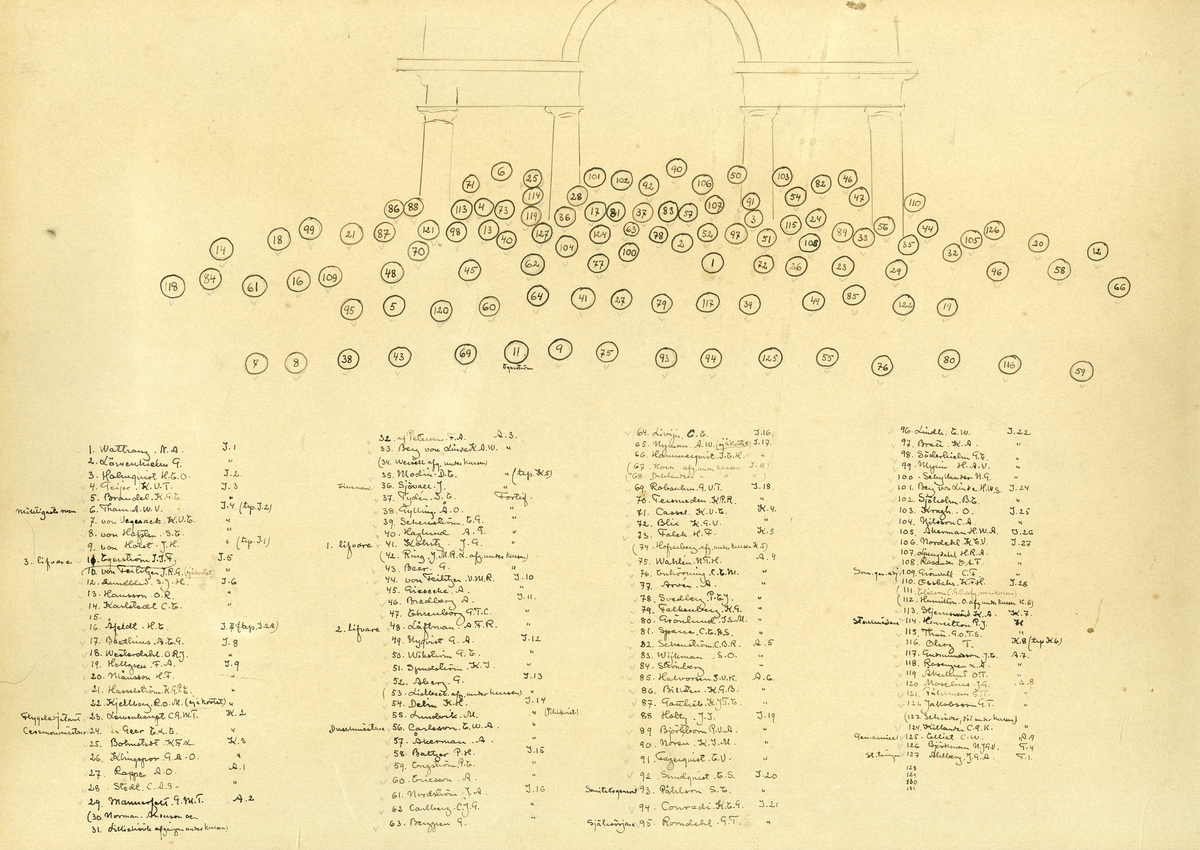 90
6
25
101
102
92
106
50
103
82
46
71
114
28
91
54
47
110
86
88
113
4
73
119
36
17
81
37
83
57
107
3
115
24
56
44
126
14
18
99
21
87
121
98
13
40
127
104
124
63
78
2
52
97
51
108
89
33
35
105
32
20
12
70
100
118
84
61
16
109
48
45
62
77
1
72
26
23
29
96
58
66
95
5
120
60
64
41
27
79
117
39
49
85
122
19
7
8
38
43
69
11
9
75
93
94
125
55
76
80
116
59
Egerström
1. Wattrang. N. A. I. 1
2. Löwenhielm G. "
3. Holmquist H.E.O. I. 2
4. Geijer. K.V.T. I. 3
5. Brandel. K.G.E. "
6. Tham. A.W.V. I. 4 (tjg. I.2)
7. von Vegesack. K.V.E. "
8. von Hofsten. S.E. "
9. von Holst J.H. " (tjg. I.1)
3. lifvare
Egerström J.J.F. I. 5
10. von Feilitzen J.R.G. (ej kortet) "
12. Lundblad S.J.H. I. 6
13. Hansson O.R. "
14. Karlstedt C.E. "
15.
16. Afzeldt. H.E.
17. Boethius. A.E.G. I. 8
18. Westerdahl O.R.J. "
19. Hallgren. F.A. I. 9
20. Månsson H.F. "
21. Hasselström K.G.E. "
22. Kjellberg. R.O.M. (ej kortet) "
23. Lewenhaupt C.G.M.T. K. 2
24. de Geer E.L.E. "
25. Bohnstedt K. K. 3
26. Klingspor G.A.O. "
27. Rappe A.O. A. 1
28. Stedt. C.A.S. "
29. Mannerfelt. G.M.T. A. 2
(30 Norman. Anderson
31. Lilliehöök afgången under kursen)
32. af Petersens. F.A. A. 3.
33. Berg von Linde K.A.W. "
(34. Wersäll afg. under kursen)
35. Modin D.E. " (tjg. K5)
36. Sjövall J. "
37. Tydén. J.E. Fortif.
38. Gylling A.O. "
39. Schenström. E.G. "
40. Haglund A. G. "
1. lifvare
41. J.G. "
(42. Ring J.M.R.L. afg. under kursen)
43. Beer. G. "
44. von Feilitzen V.M.R. I. 10
45. Giesecke A. "
46. Bredberg A. I. 11.
47. Ehrenborg G.T.C. "
2. lifvare
48. Löftman A.F.R. "
49. Nyqvist G. A. I. 12
50. Wikström G. E. "
51. Ljundström. K.J. "
52. Åberg. G. I. 13
(53. Lidbeck afg. under kursen) "
54. Delin K.H. I. 14
55. Lundkvist. M. "
56. Carlsson. E.W.A. "
57. Åkerman. A. "
58. Baltzer P.H. I. 15
59. Engström. P.E. "
60. Ericsson. A. "
61. Nordström. J. A. I. 16
62 Carlberg. C.J.G. "
63. Berggren G. "
64. Livijn. C.E. I. 16.
65. Nyman. A.W. (ej kortet) I. 17.
66. Hammarqvist J.E.H. "
(67. Rosen afg. under kursen I. 18)
69. Robsahm G.V.T. I. 18
70. Tersmeden K.P.R. "
71. Cassel. K.V.E. K. 4
72. Blix K.G.V. "
73. Falck. H.F. K. 5
(74. Hofverberg afg. under kursen K 5)
75. Wahlén. N.T.H. A. 4
76. Enhörning. C.E.M. "
77. Arvén. A. "
78. Svedberg. P.E.J. "
79. Falkenberg. K.G. "
80. Grönlund. I.S.M. "
81. Sparre. C.E.R.S. "
82. Schenström. C.B.R. A. 5
83. Wijkman. S.O. "
84. Steinberg "
85. Halvorsen. I.V.K. A. 6.
86. Billstén. K.G.B. "
87. Gustlieb. K.J.T.E. "
88 Holtz. J. J. I. 19
89 Björkbom P.V.A. "
90. Norén. K.I.M. "
91. Engeqvist. E.V. "
92. Sundquist. E.S. I. 20
93. Påhlson. S.E. "
94. Conradi. K.E.G. I. 21
95. Romdahl. G.T. "
96. Lindh. E.W. I. 22
97. Bratt. K.A. "
98. Söderhielm. G.E. "
99. Myrin H.A.V. "
100. N.G. "
101. Berg von Linde H.W.S. I. 24
102. Sjöholm. B.E. "
103. Kragh. O. I. 25
104. Nilsson C.A. "
105. Åkerman H.W.A. I. 26
106. Nordahl K.E.V. I. 27
107. Ljungdahl H.R.A. "
108. E.A.F. "
109. Grönvall C.F. "
110. K.F.H. I. 28
(112. Hamilton. O. afg. under kursen K.6)
113. Stjernswärd K.A. K. 7.
114. Hamilton P.J. K
115. Thott. G.O.T.S. "
116. Oberg T. K. 8 (tjg K.6)
117. Gummesson J.E. A. 7.
118. Rosengren L.A. "
119. Åkerlund O.T. "
120. Moselius J.G. A. 8
121. Påhlman E.T. "
122 Jakobsson G.T. "
(123. Schröder, död under kursen)
124. Killander C.G.K. "
125. Elliot C.W. A. 9
126 Björkman N.J.G.V. T. 4
127 Ahlberg. J.G.A. T. 1.
128
129
130
131